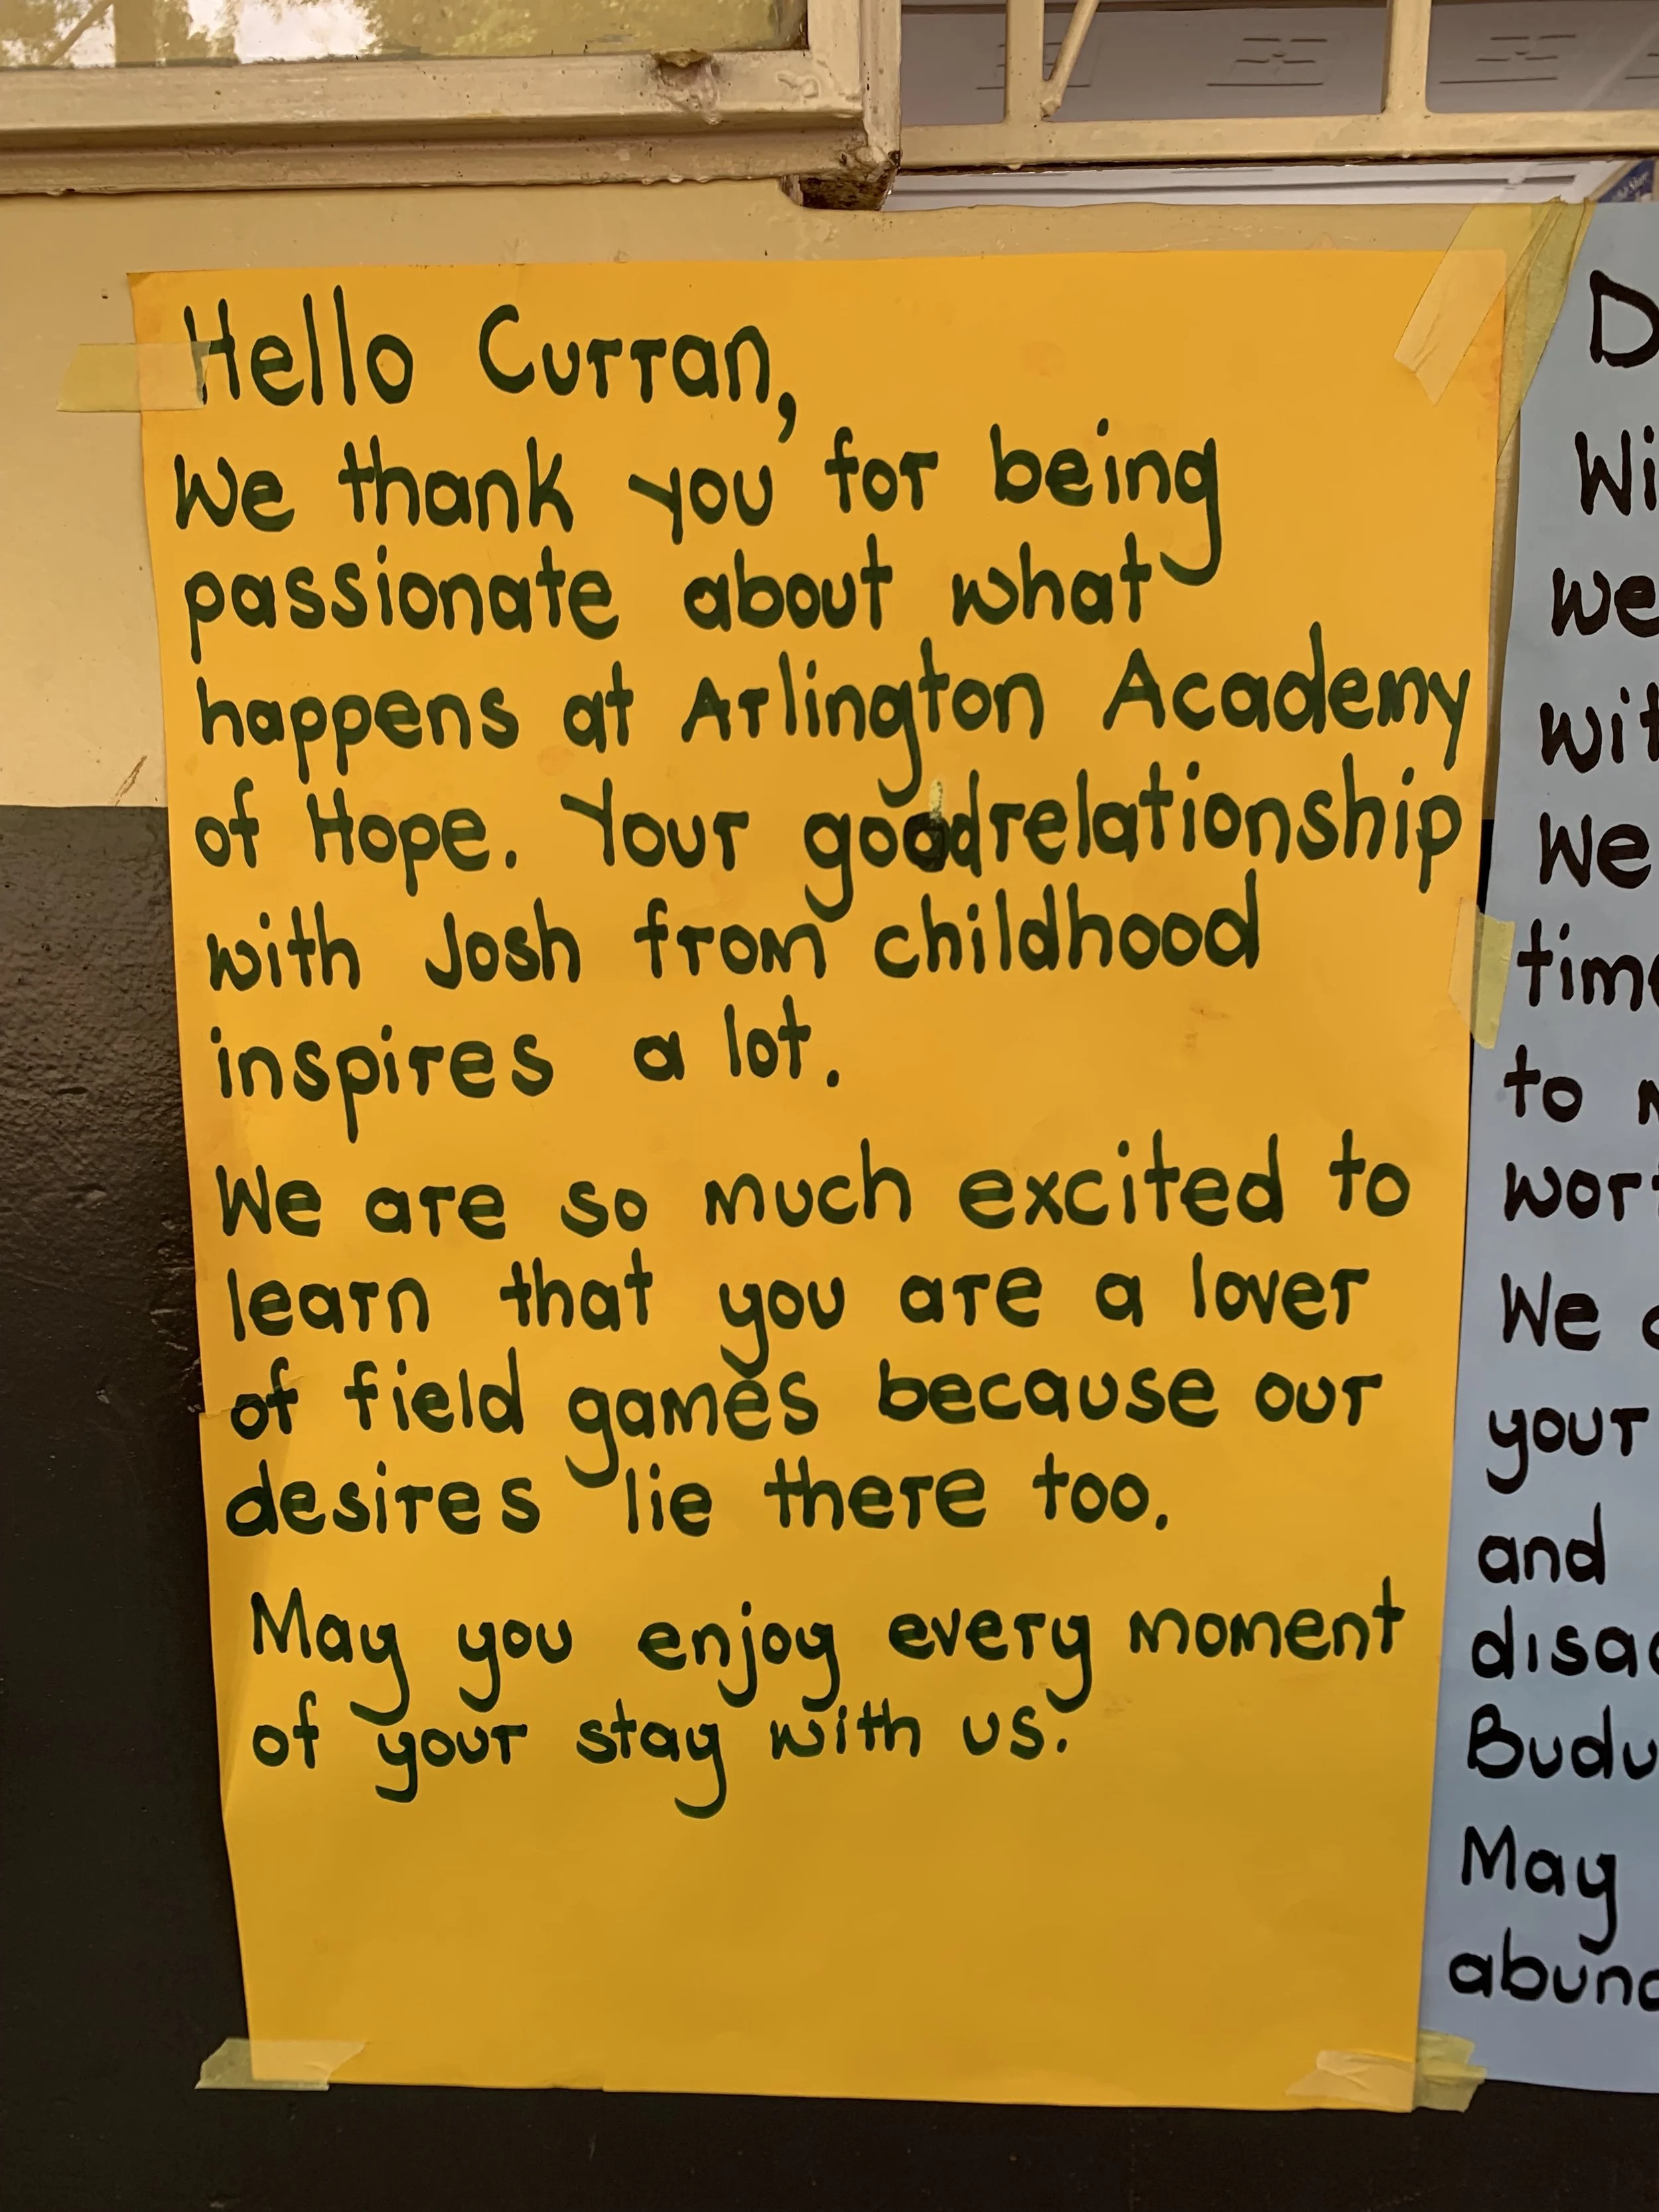 Hello Curran,
We thank you for being
passionate about what
happens at Arlington Academy
of Hope. Your goodrelationship
with Josh from childhood
inspires a lot.
We are so much excited to
learn that you are a lover
of field games because our
desires lie there too.
May you enjoy every moment
of your stay with us.
D
Wi
we
wit
We
time
to
wor
We
your
and
disa
Budu
May
abund